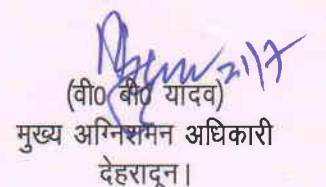 21/7
(वी० बी० यादव)
मुख्य अग्निशमन अधिकारी
देहरादून।